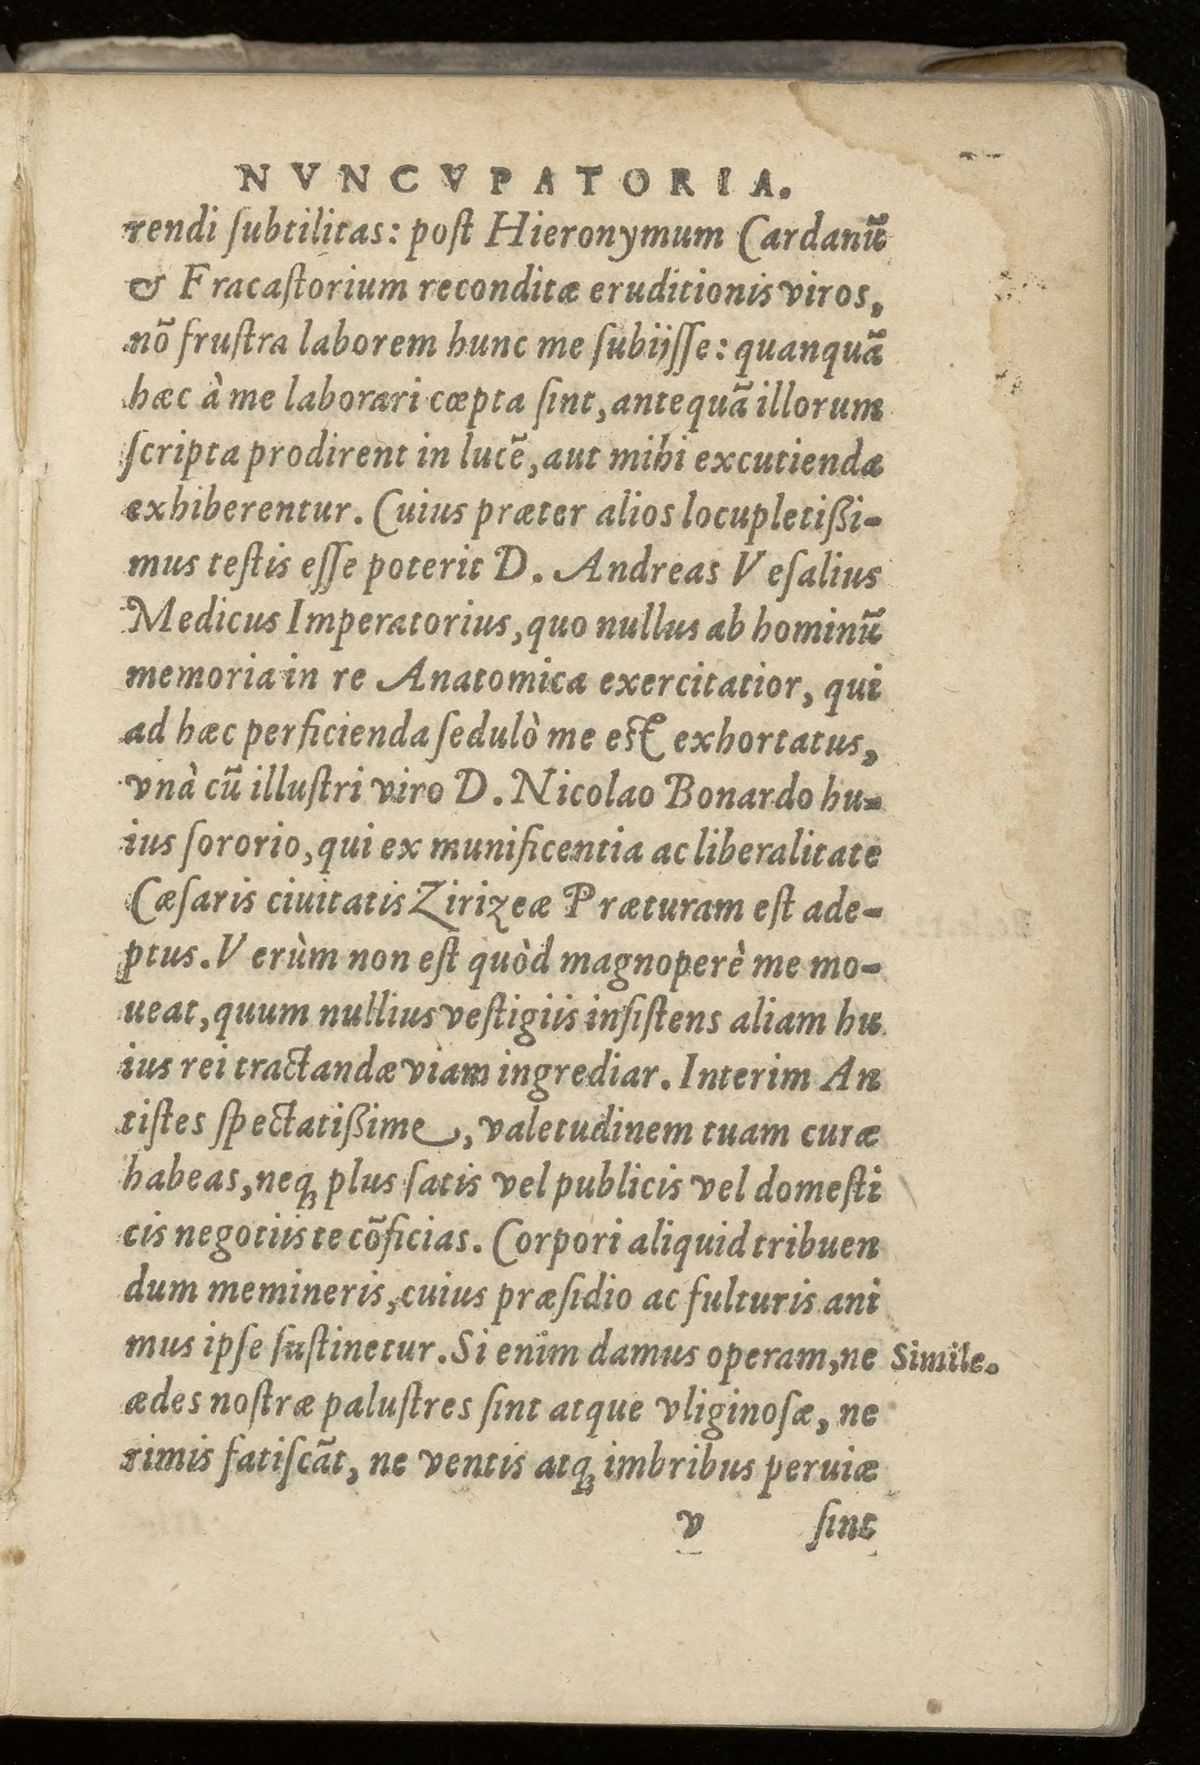 NVNCVPATORIA.
rendi ſubtilitas: poſt Hieronymum Cardanũ
& Fracaſtorium reconditæ eruditionis viros,
nõ fruſtra laborem hunc me ſubijſſe: quanquã
hæc à me laborari cœpta ſint, antequã illorum
ſcripta prodirent in lucẽ, aut mihi excutienda
exhiberentur. Cuius præter alios locupletißi-
mus teſtis eſſe poterit D. Andreas Veſalius
Medicus Imperatorius, quo nullus ab hominũ
memoria in re Anatomica exercitatior, qui
ad hæc perficienda ſedulò me eſt exhortatus,
vnà cũ illuſtri viro D. Nicolao Bonardo hu-
ius ſororio, qui ex munificentia ac liberalitate
Cæſaris ciuitatis Zirizeæ Præturam eſt ade-
ptus. Verùm non eſt quòd magnoperè me mo-
ueat, quum nullius veſtigiis inſiſtens aliam hu
ius rei tractandæ viam ingrediar. Interim An
tiſtes ſpectatißime, valetudinem tuam curæ
habeas, neq; plus ſatis vel publicis vel domeſti
cis negotiis te cõficias. Corpori aliquid tribuen
dum memineris, cuius præſidio ac fulturis ani
mus ipſe ſuſtinetur. Si enim damus operam, ne Simile.
ædes noſtræ paluſtres ſint atque vliginoſæ, ne
rimis fatiſcãt, ne ventis atq; imbribus peruiæ
v ſint